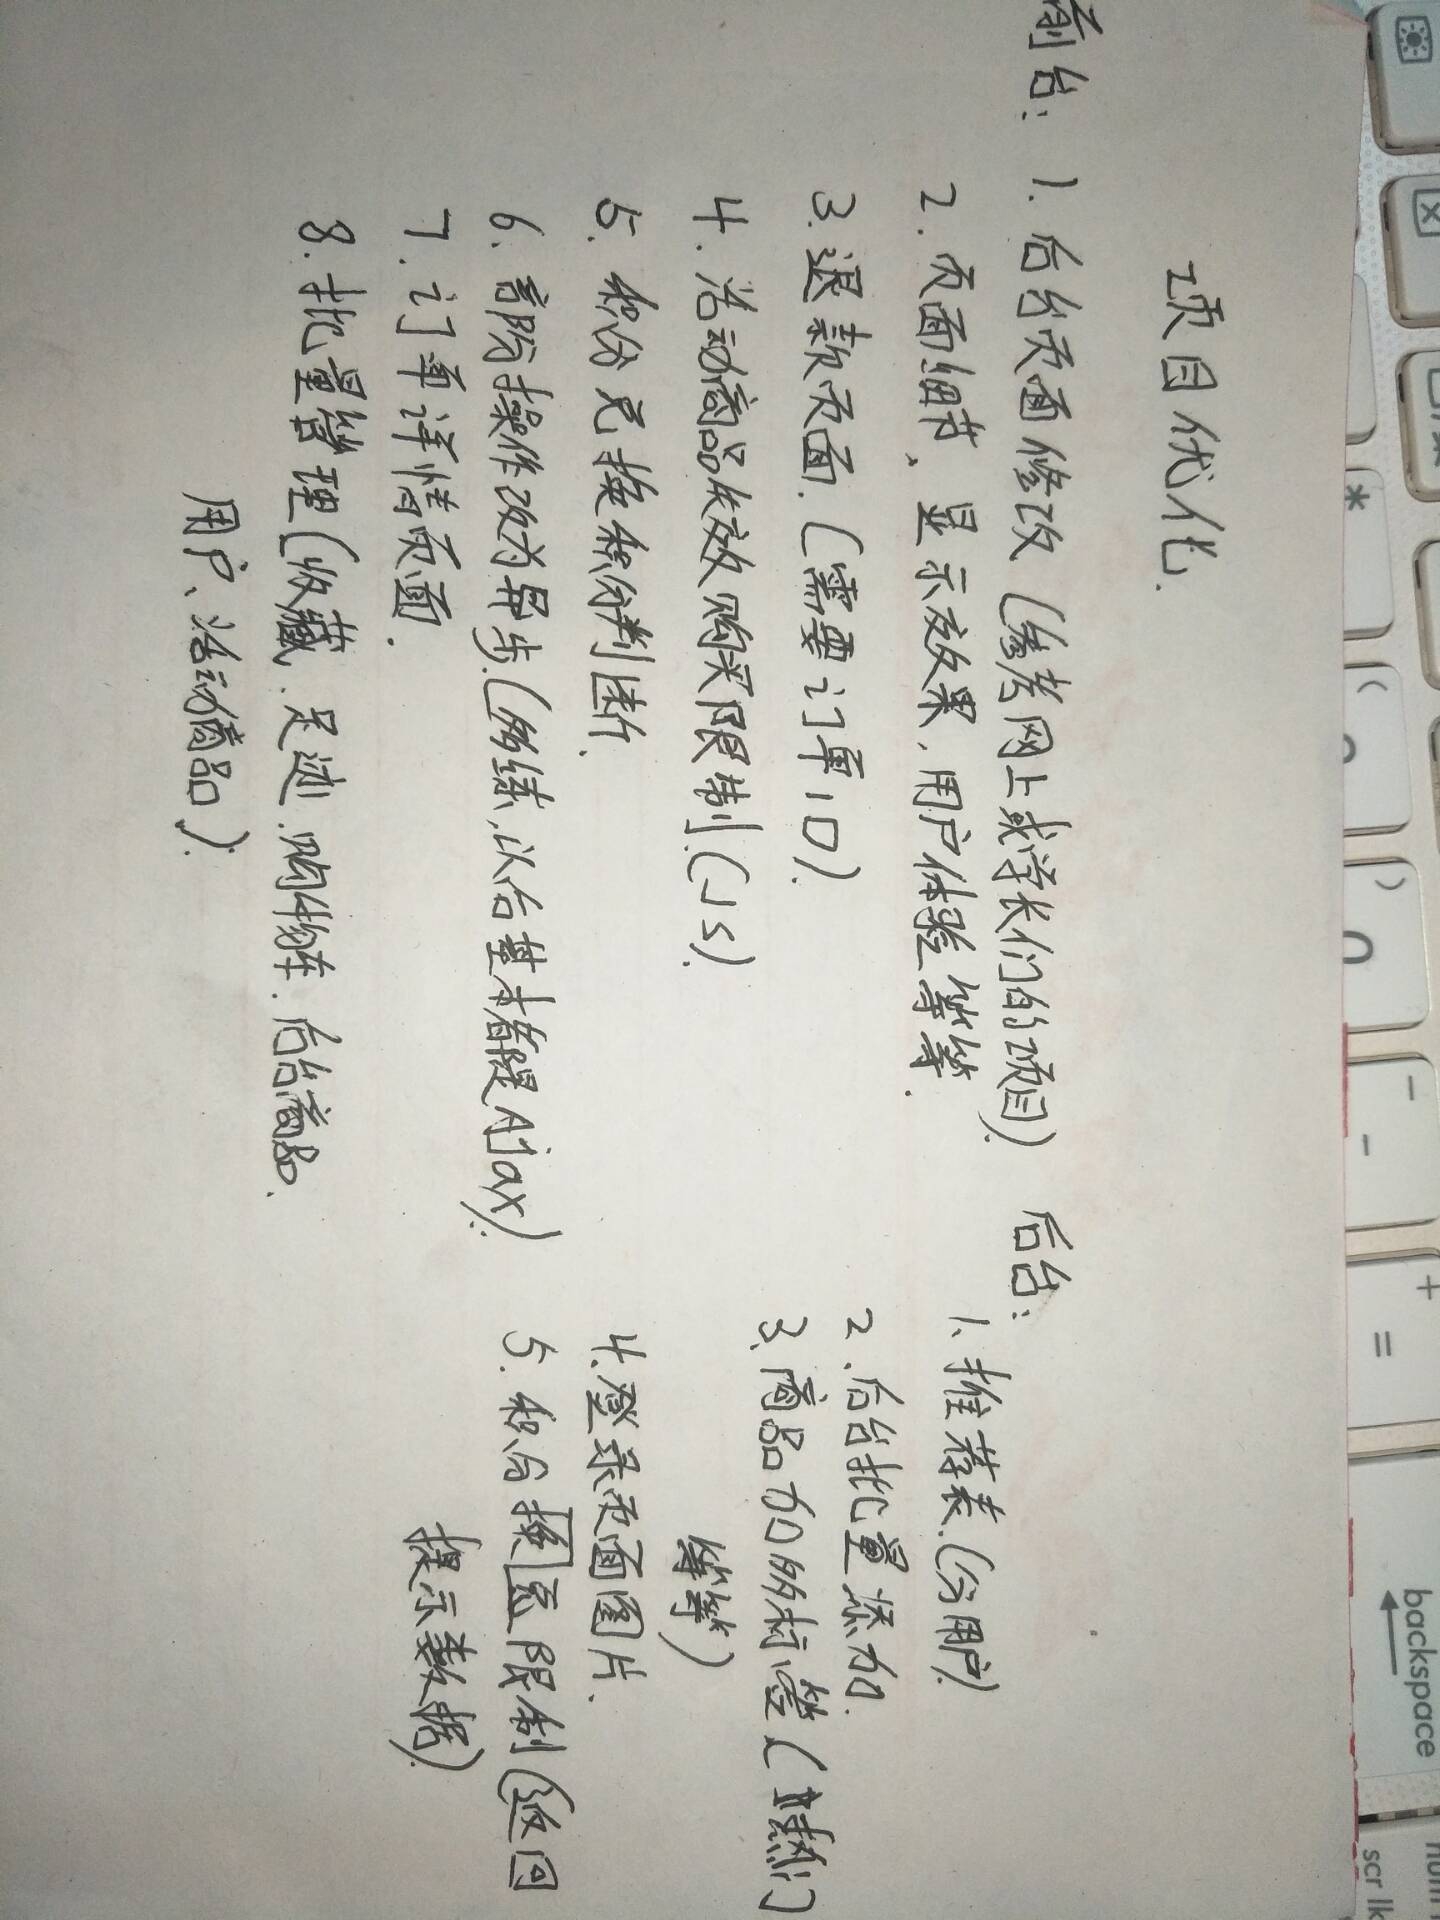 backspace
num
scr lk
* ( ) - + =
项目优化.
前台: 1. 后台页面修改 (参考网上或学长们的项目).
2. 页面细节、显示效果,用户体验等等.
3. 退款页面.(需要订单ID).
4. 活动商品失效购买限制.(JS).
5. 积分兑换积分判断.
6. 部分操作改为异步.(多练,以后基本都是Ajax).
7. 订单详情页面.
8. 批量管理(收藏、足迹、购物车、后台商品、
用户、活动商品).
后台:
1. 推荐表.(分用户).
2. 后台批量添加.
3. 商品加多标签(热门
等等)
4. 登录页面图片.
5. 积分换兑限制(返回
提示数据).